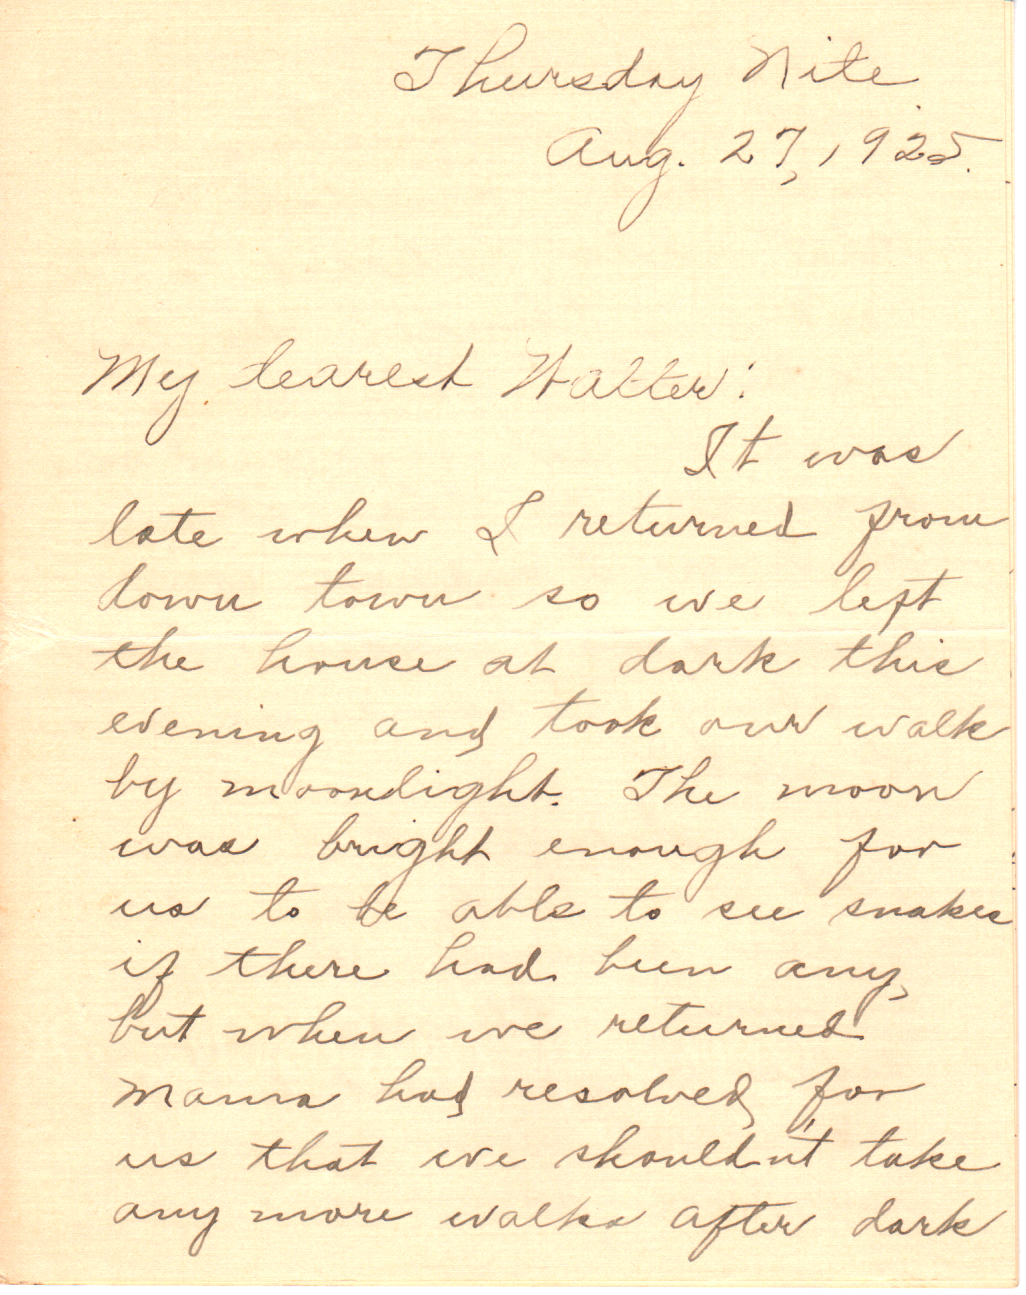 Thursday Nite
Aug. 27, 1925.
My dearest Walter:
It was
late when I returned from
down town so we left
the house at dark this
evening and took our walk
by moonlight. The moon
was bright enough for
us to be able to see snakes
if there had been any,
but when we returned
Mama had resolved for
us that we shouldn't take
any more walks after dark